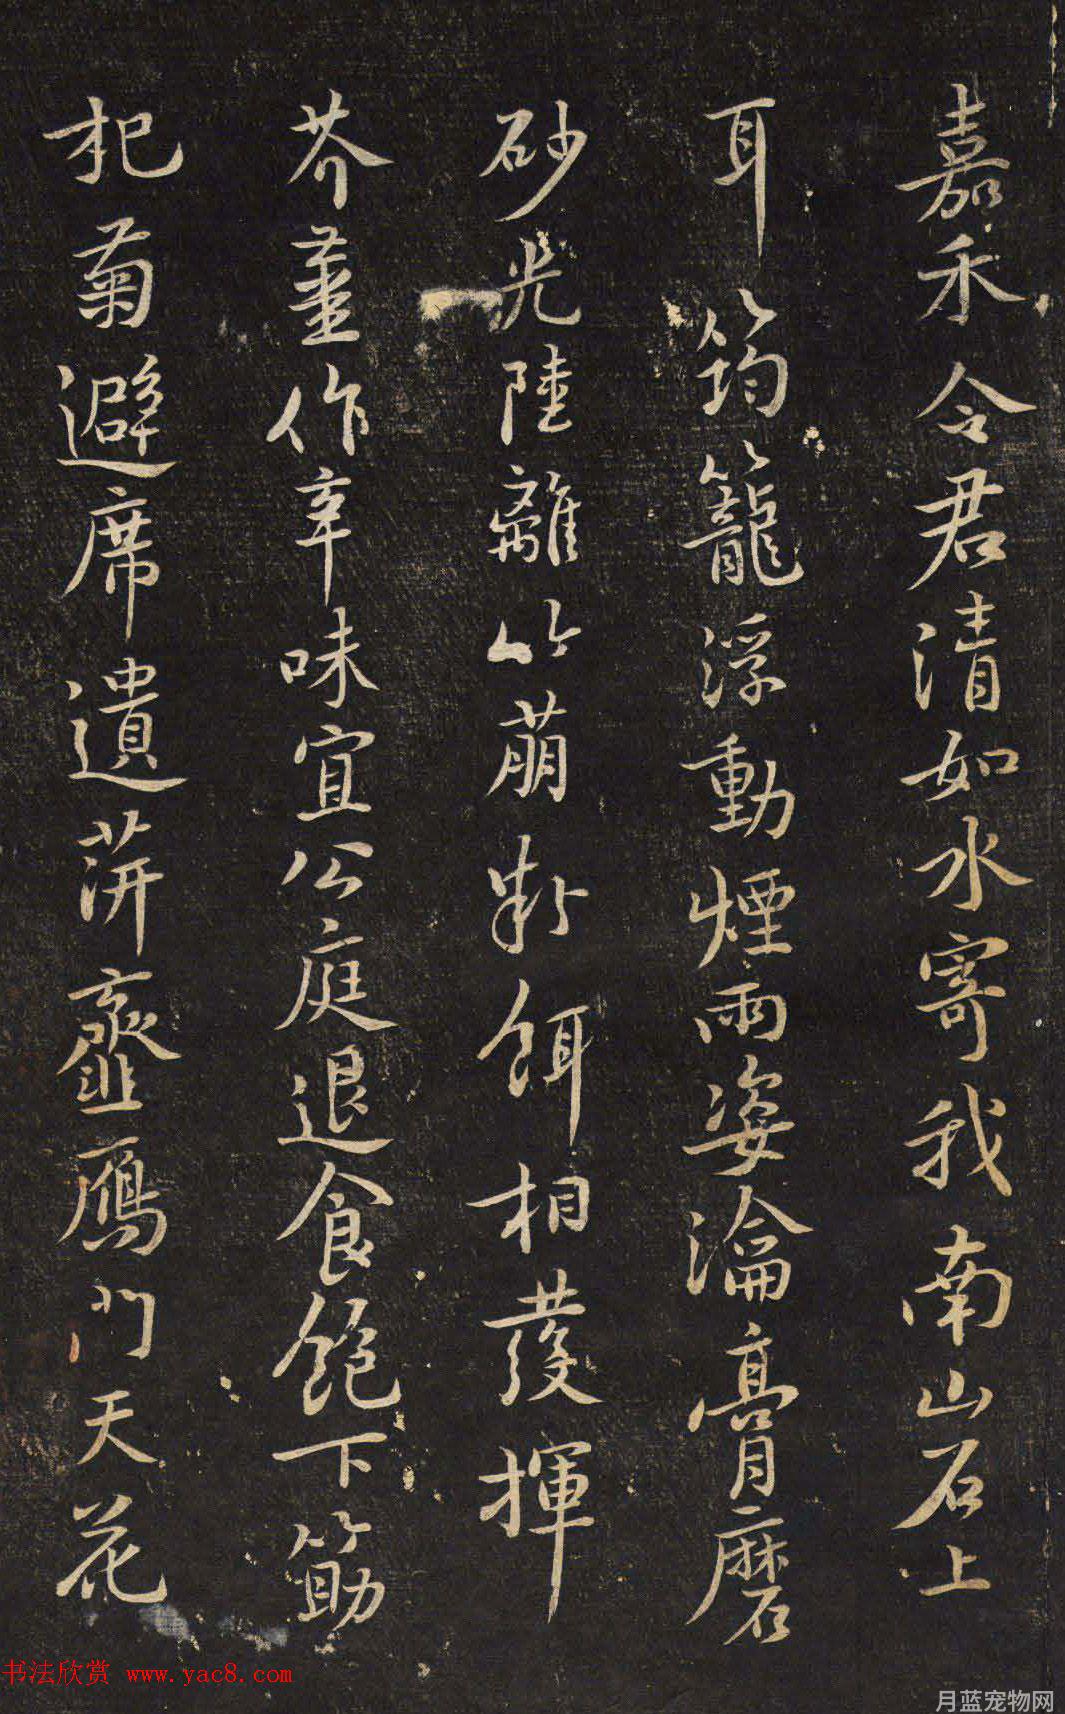 嘉禾令君清如水寄我南山石上
耳筠籠浮動煙雨姿瀹膏磨
砂光陸離竹萌粉餌相發揮
芥薑作辛味宜公庭退食飽下筯
杞菊避席遺蓱虀鴈門天花
书法欣赏 www.yac8.com
月蓝宠物网